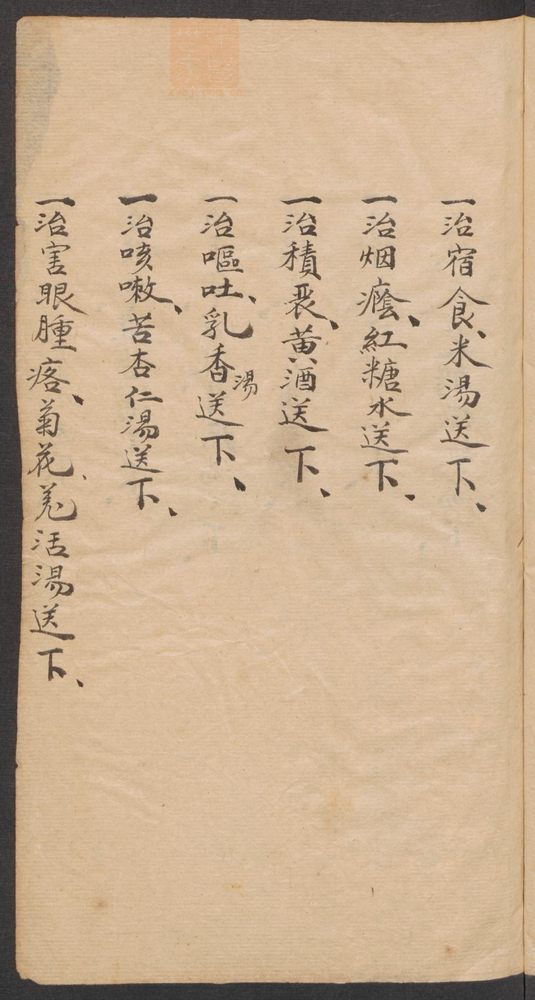 一治宿食、米湯送下、
一治烟癮、紅糖水送下、
一治積聚、黃酒送下、
一治嘔吐、乳香湯送下、
一治咳嗽、苦杏仁湯送下、
一治害眼腫疼、菊花、羌活湯送下、